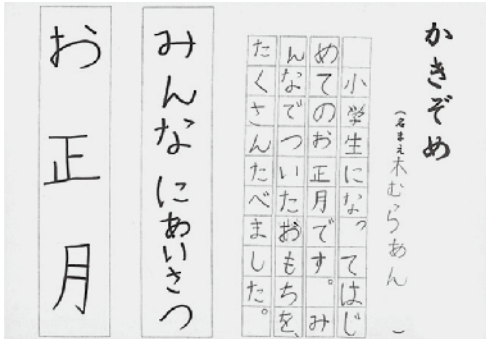 かきぞめ
(名まえ 木むらあん )
小学生になってはじ
めてのお正月です。み
んなでついたおもちを、
たくさんたべました。
みんなにあいさつ
お正月